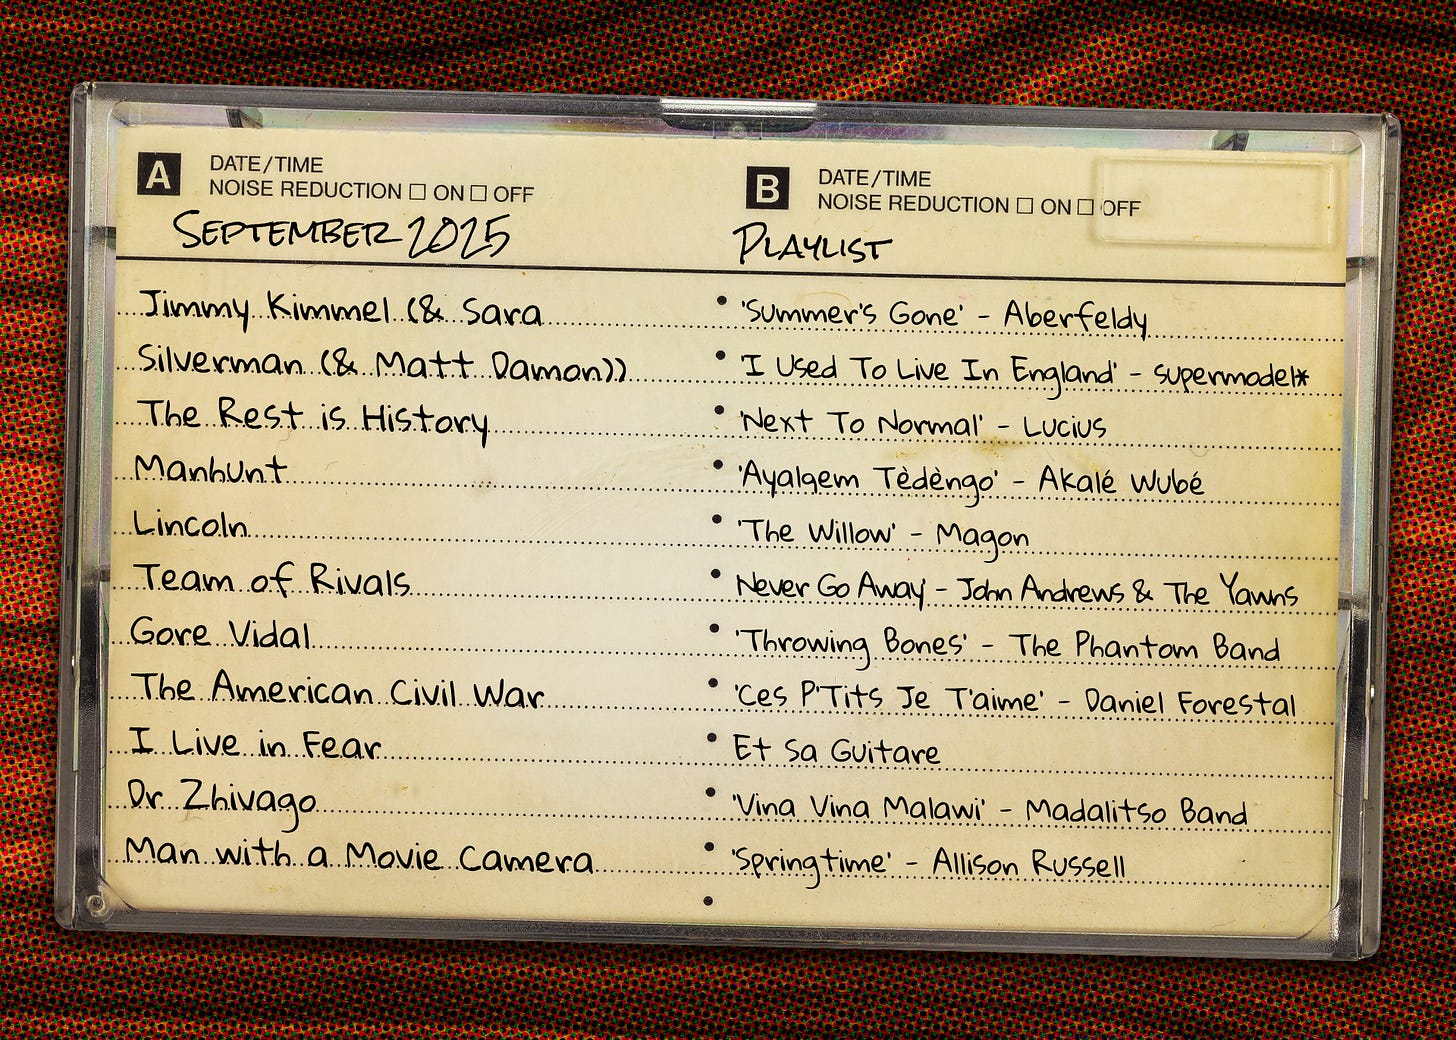 A DATE/TIME
NOISE REDUCTION ☐ ON ☐ OFF
SEPTEMBER 2025
Jimmy Kimmel (& Sara
Silverman (& Matt Damon))
The Rest is History
Manhunt
Lincoln
Team of Rivals
Gore Vidal
The American Civil War
I Live in Fear
Dr Zhivago
Man with a Movie Camera
B DATE/TIME
NOISE REDUCTION ☐ ON ☐ OFF
PLAYLIST
• 'Summer's Gone' - Aberfeldy
• 'I Used To Live In England' - supermodel*
• 'Next To Normal' - Lucius
• 'Ayalqem Tèdèngo' - Akalé Wubé
• 'The Willow' - Magon
• Never Go Away' - John Andrews & The Yawns
• 'Throwing Bones' - The Phantom Band
• 'Ces P'Tits Je T'aime' - Daniel Forestal
• Et Sa Guitare
• 'Vina Vina Malawi' - Madalitso Band
• 'Springtime' - Allison Russell
•